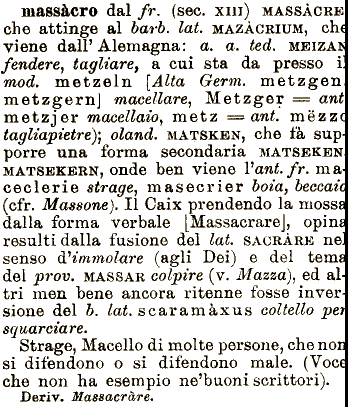 massàcro dal fr. (sec. XIII) MASSÀCRE
che attinge al barb. lat. MAZÀCRIUM, che
viene dall' Alemagna: a. a. ted. MEIZAN
fendere, tagliare, a cui sta da presso il
mod. metzeln [Alta Germ. metzgen
metzgern] macellare, Metzger = ant
metzjer macellaio, metz = ant. mëzzo
tagliapietre); oland. MATSKEN, che fà sup-
porre una forma secondaria MATSEKEN
MATSEKERN, onde ben viene l'ant. fr. ma-
ceclerie strage, masecrier boia, beccaio
(cfr. Massone). Il Caix prendendo la mossa
dalla forma verbale [Massacrare], opina
resulti dalla fusione del lat. SACRÀRE nel
senso d'immolare (agli Dei) e del tema
del prov. MASSAR colpire (v. Mazza), ed al-
tri men bene ancora ritenne fosse inver-
sione del b. lat. scaramàxus coltello per
squarciare.
Strage, Macello di molte persone, che non
si difendono o si difendono male. (Voce
che non ha esempio ne'buoni scrittori).
Deriv. Massacràre.